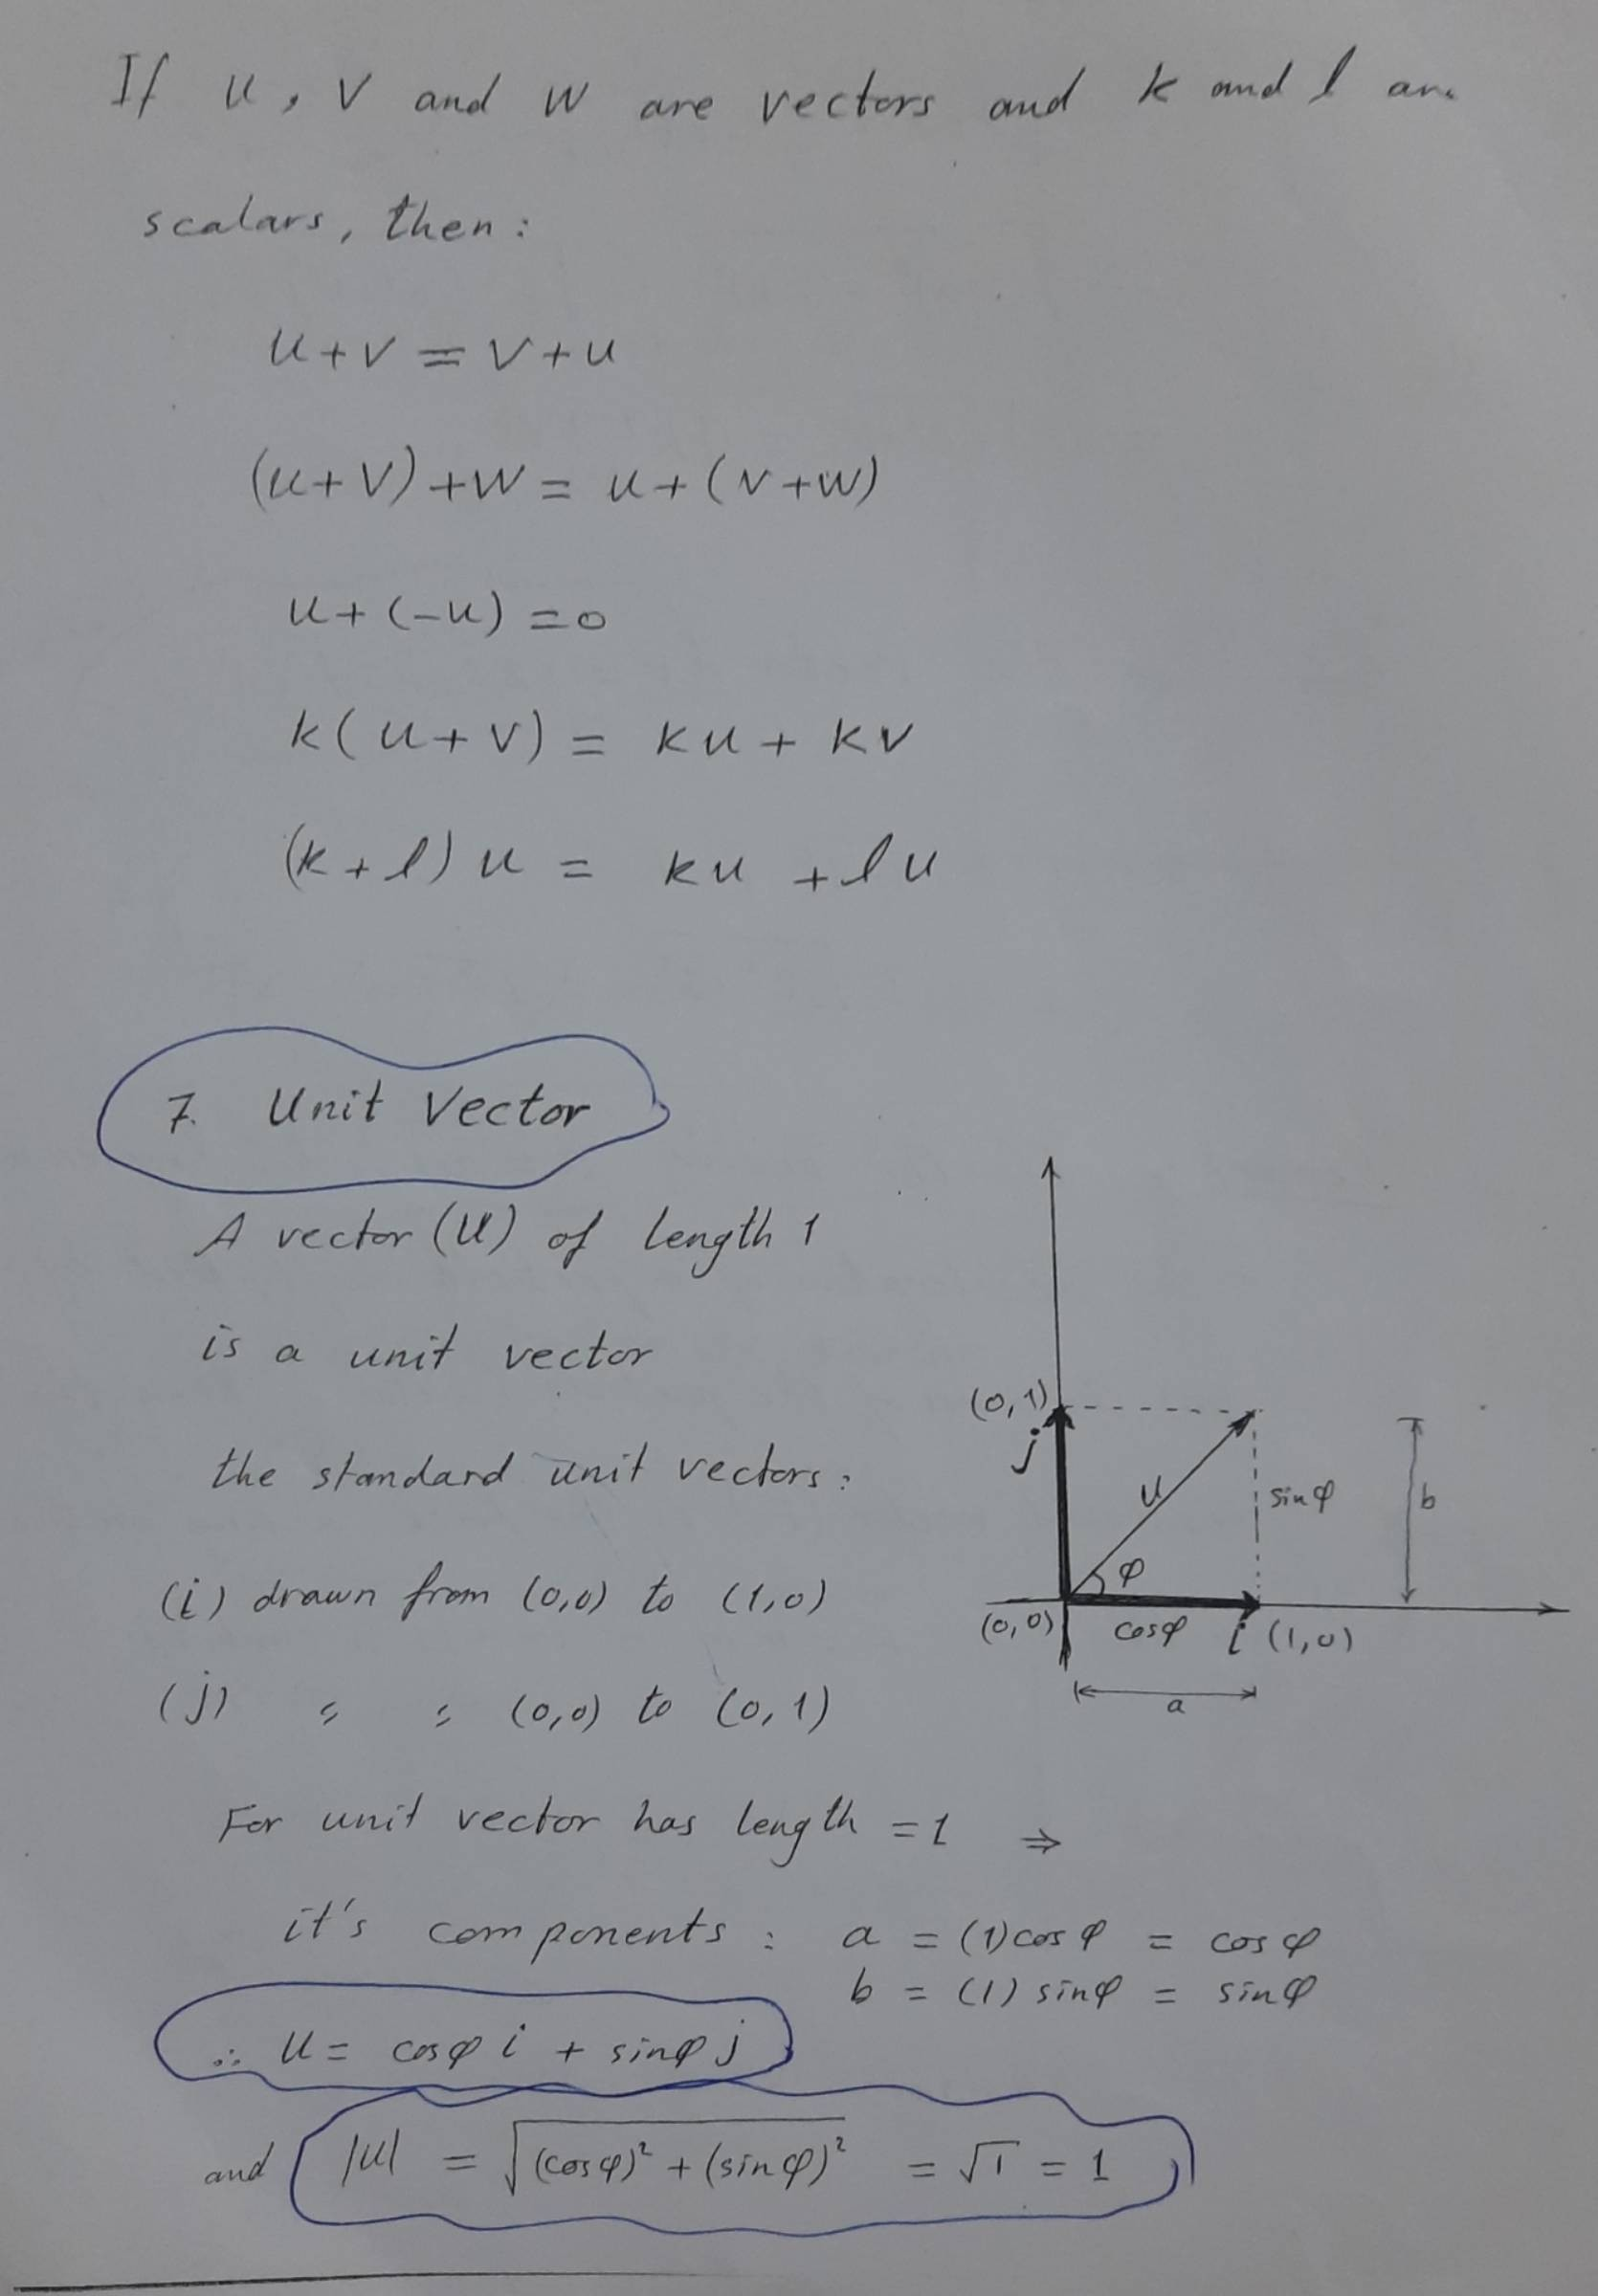 If u, v and w are vectors and k and l are
scalars, then:
u+v = v+u
(u+v)+w = u+(v+w)
u+(-u) =0
k(u+v) = ku + kv
(k+l) u = ku + lu
7. Unit Vector
A vector (u) of length 1
is a unit vector
the standard unit vectors:
(i) drawn from (0,0) to (1,0)
(j) " " (0,0) to (0,1)
(0,1)
j
u
sinφ
b
φ
(0,0)
cosφ
i (1,0)
a
For unit vector has length =1 ⇒
it's components : a = (1)cosφ = cosφ
b = (1) sinφ = sinφ
∴ u = cosφ i + sinφ j
and |u| = √((cosφ)² + (sinφ)²) = √1 = 1